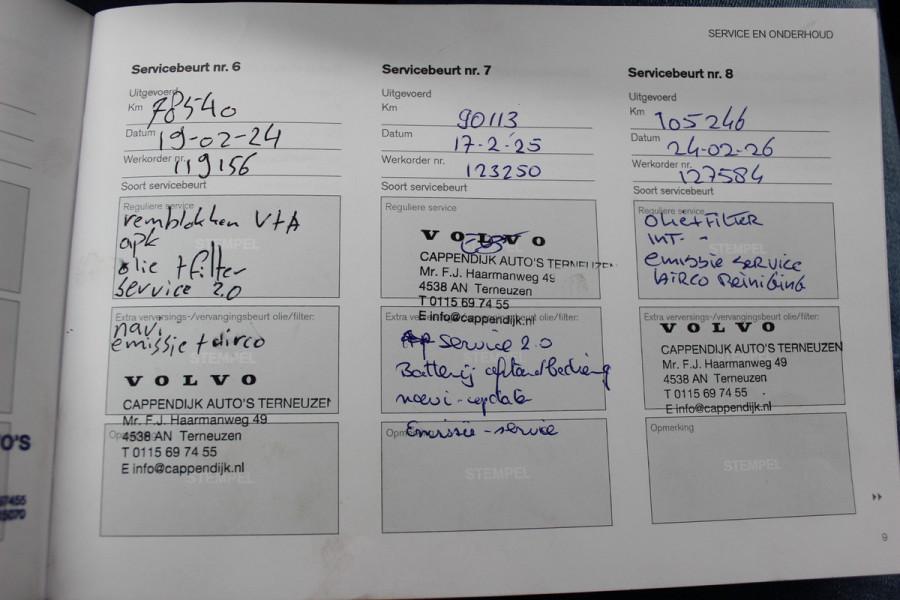 SERVICE EN ONDERHOUD
Servicebeurt nr. 6
Uitgevoerd
Km 78540
Datum 19-02-24
Werkorder nr. 119156
Soort servicebeurt
Reguliere service
remblokken V+A
apk
olie + filter
service 2.0
STEMPEL
Extra verversings-/vervangingsbeurt olie/filter:
navi
emissie + airco
STEMPEL
VOLVO
CAPPENDIJK AUTO'S TERNEUZEN
Mr. F.J. Haarmanweg 49
Opmerking
4538 AN Terneuzen
T 0115 69 74 55
E info@cappendijk.nl
STEMPEL
Servicebeurt nr. 7
Uitgevoerd
Km 90113
Datum 17-2-'25
Werkorder nr. 123250
Soort servicebeurt
Reguliere service
VOLVO
CAPPENDIJK AUTO'S TERNEUZEN
Mr. F.J. Haarmanweg 49
4538 AN Terneuzen
T 0115 69 74 55
E info@cappendijk.nl
Extra verversings-/vervangingsbeurt olie/filter:
Service 2.0
Batterij afstandbediening
navi-update
Opmerking
Emissie-service
STEMPEL
Servicebeurt nr. 8
Uitgevoerd
Km 105246
Datum 24-02-26
Werkorder nr. 127584
Soort servicebeurt
Reguliere service
Olie+Filter
INT. -
emissie service
Airco Reiniging
STEMPEL
Extra verversings-/vervangingsbeurt olie/filter:
VOLVO
CAPPENDIJK AUTO'S TERNEUZEN
Mr. F.J. Haarmanweg 49
4538 AN Terneuzen
T 0115 69 74 55
E info@cappendijk.nl
Opmerking
STEMPEL
9